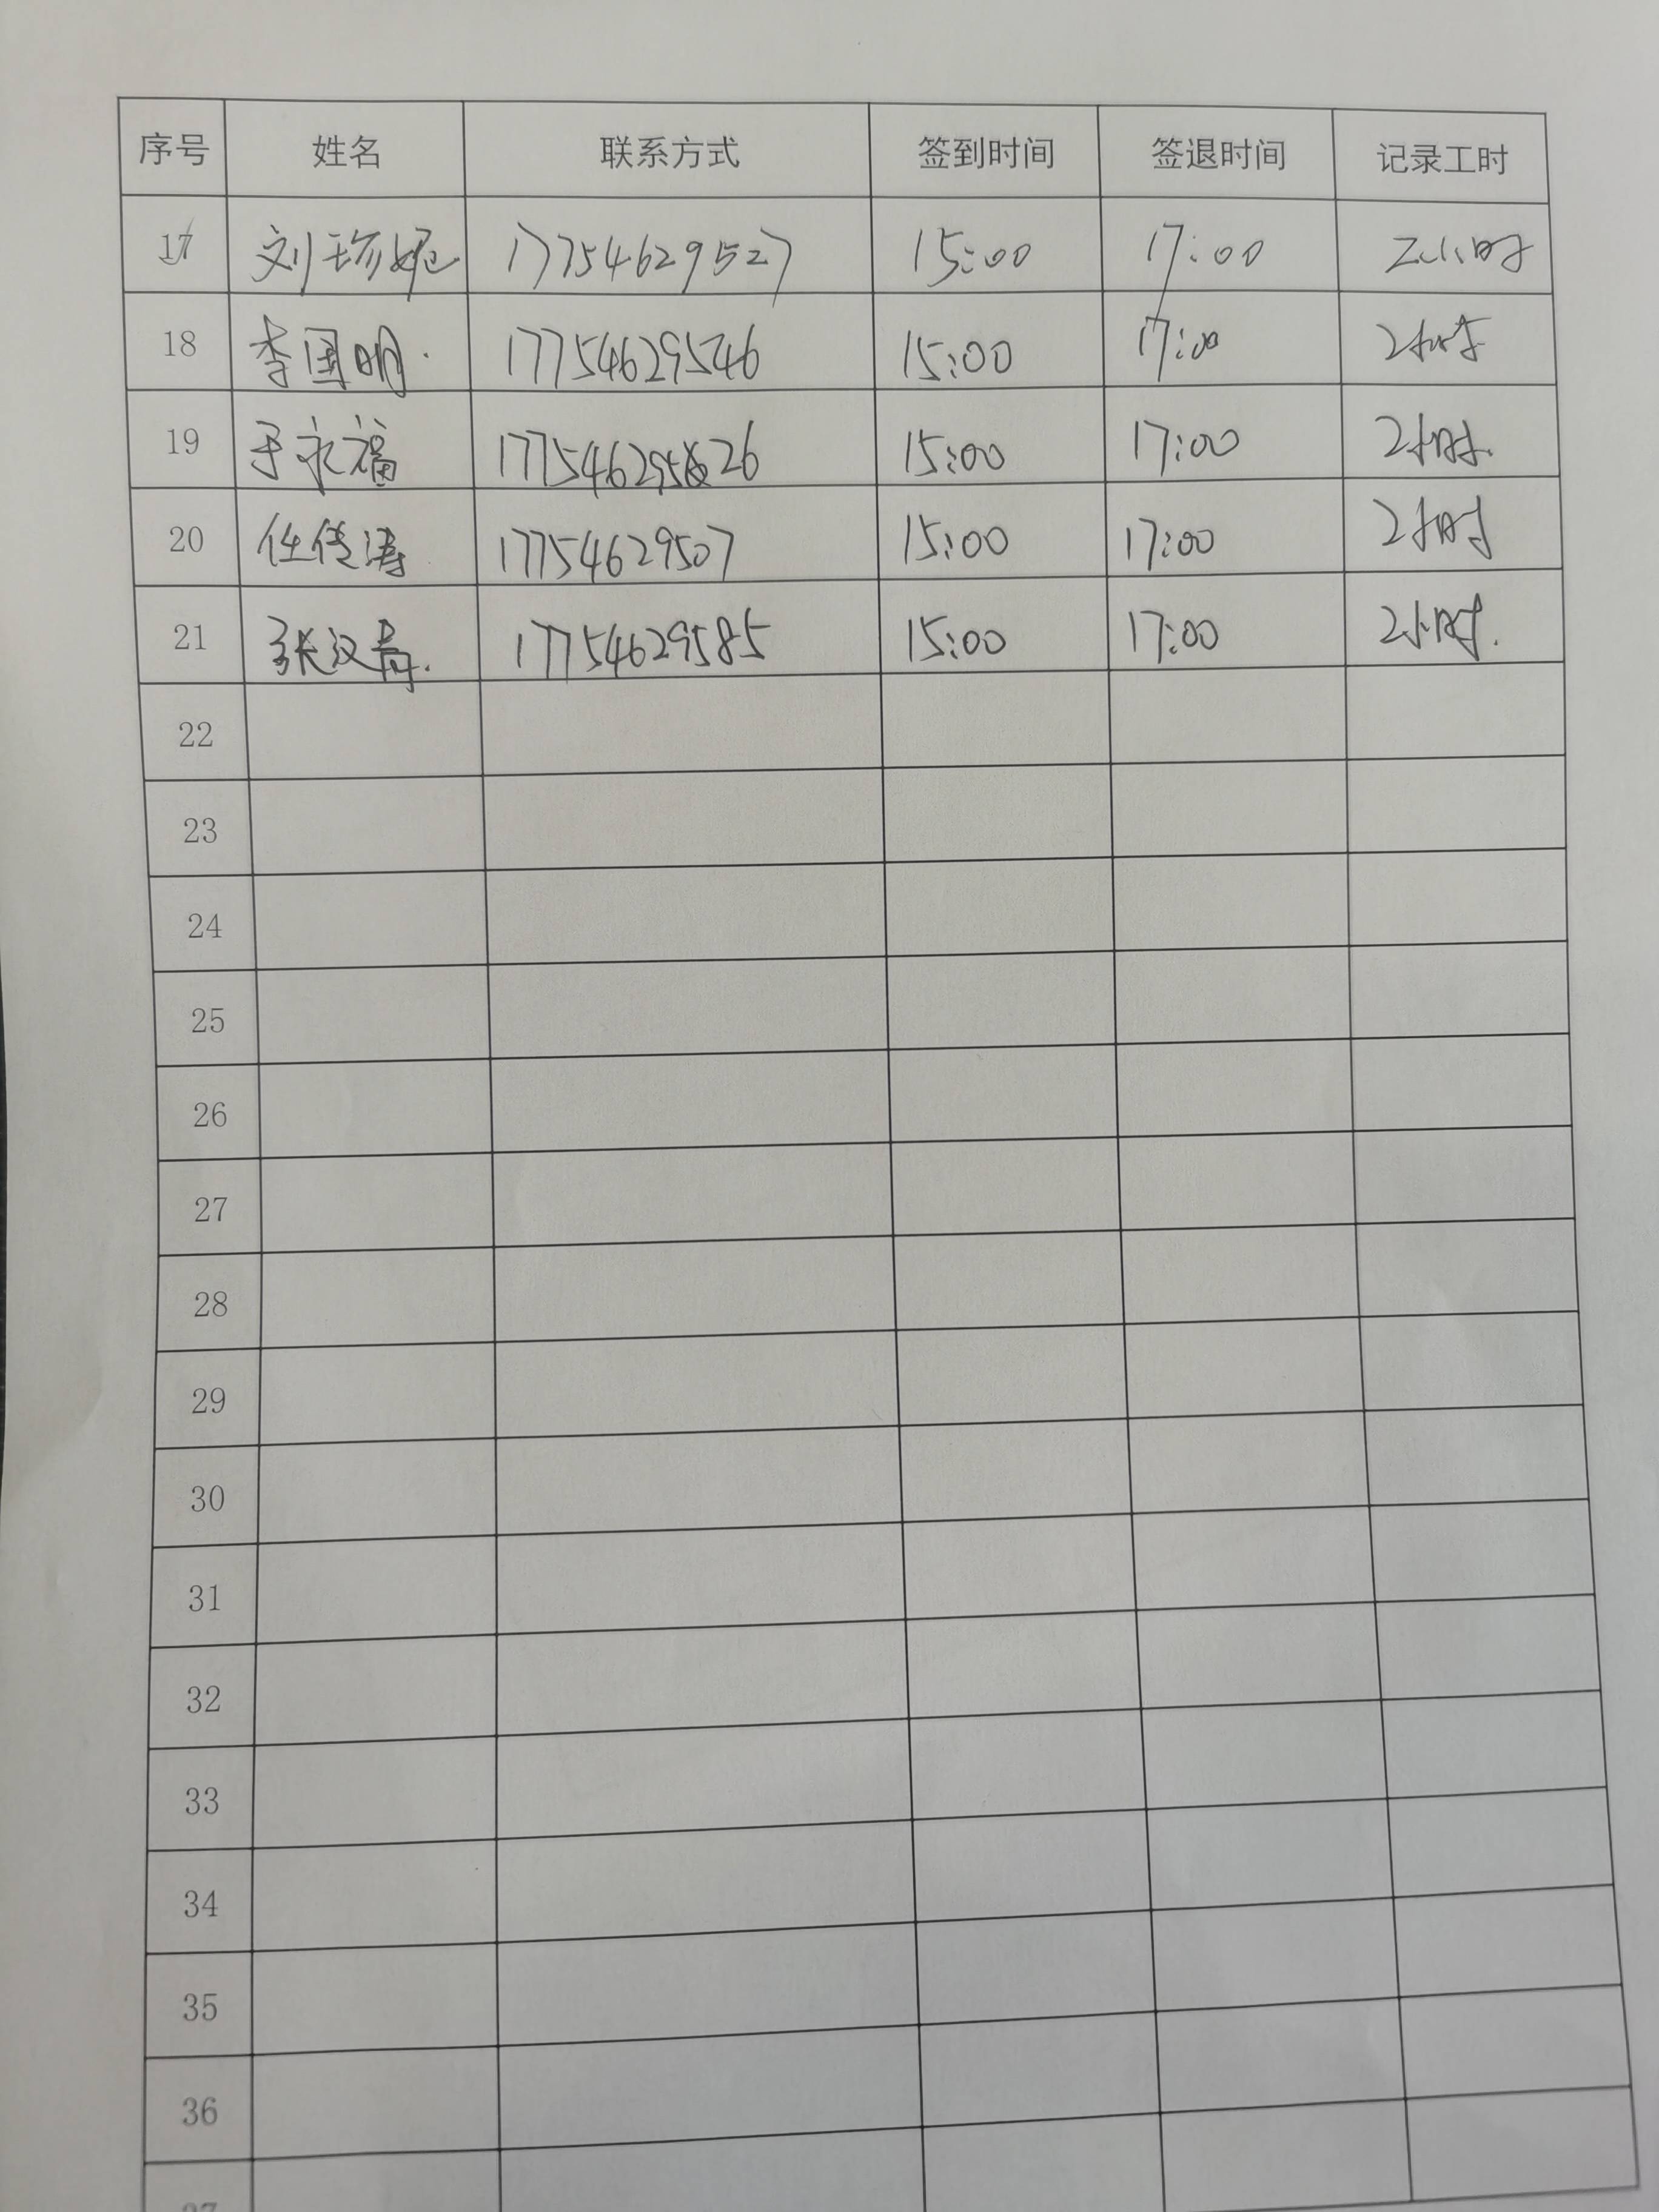 序号 姓名 联系方式 签到时间 签退时间 记录工时
17 刘珍妮 17754629527 15:00 17:00 2小时
18 李国明. 17754629546 15:00 17:00 2小时
19 于永福 177546295 26 15:00 17:00 2小时.
20 任传涛 17754629507 15:00 17:00 2小时
21 张汉青. 17754629585 15:00 17:00 2小时.
22
23
24
25
26
27
28
29
30
31
32
33
34
35
36
37